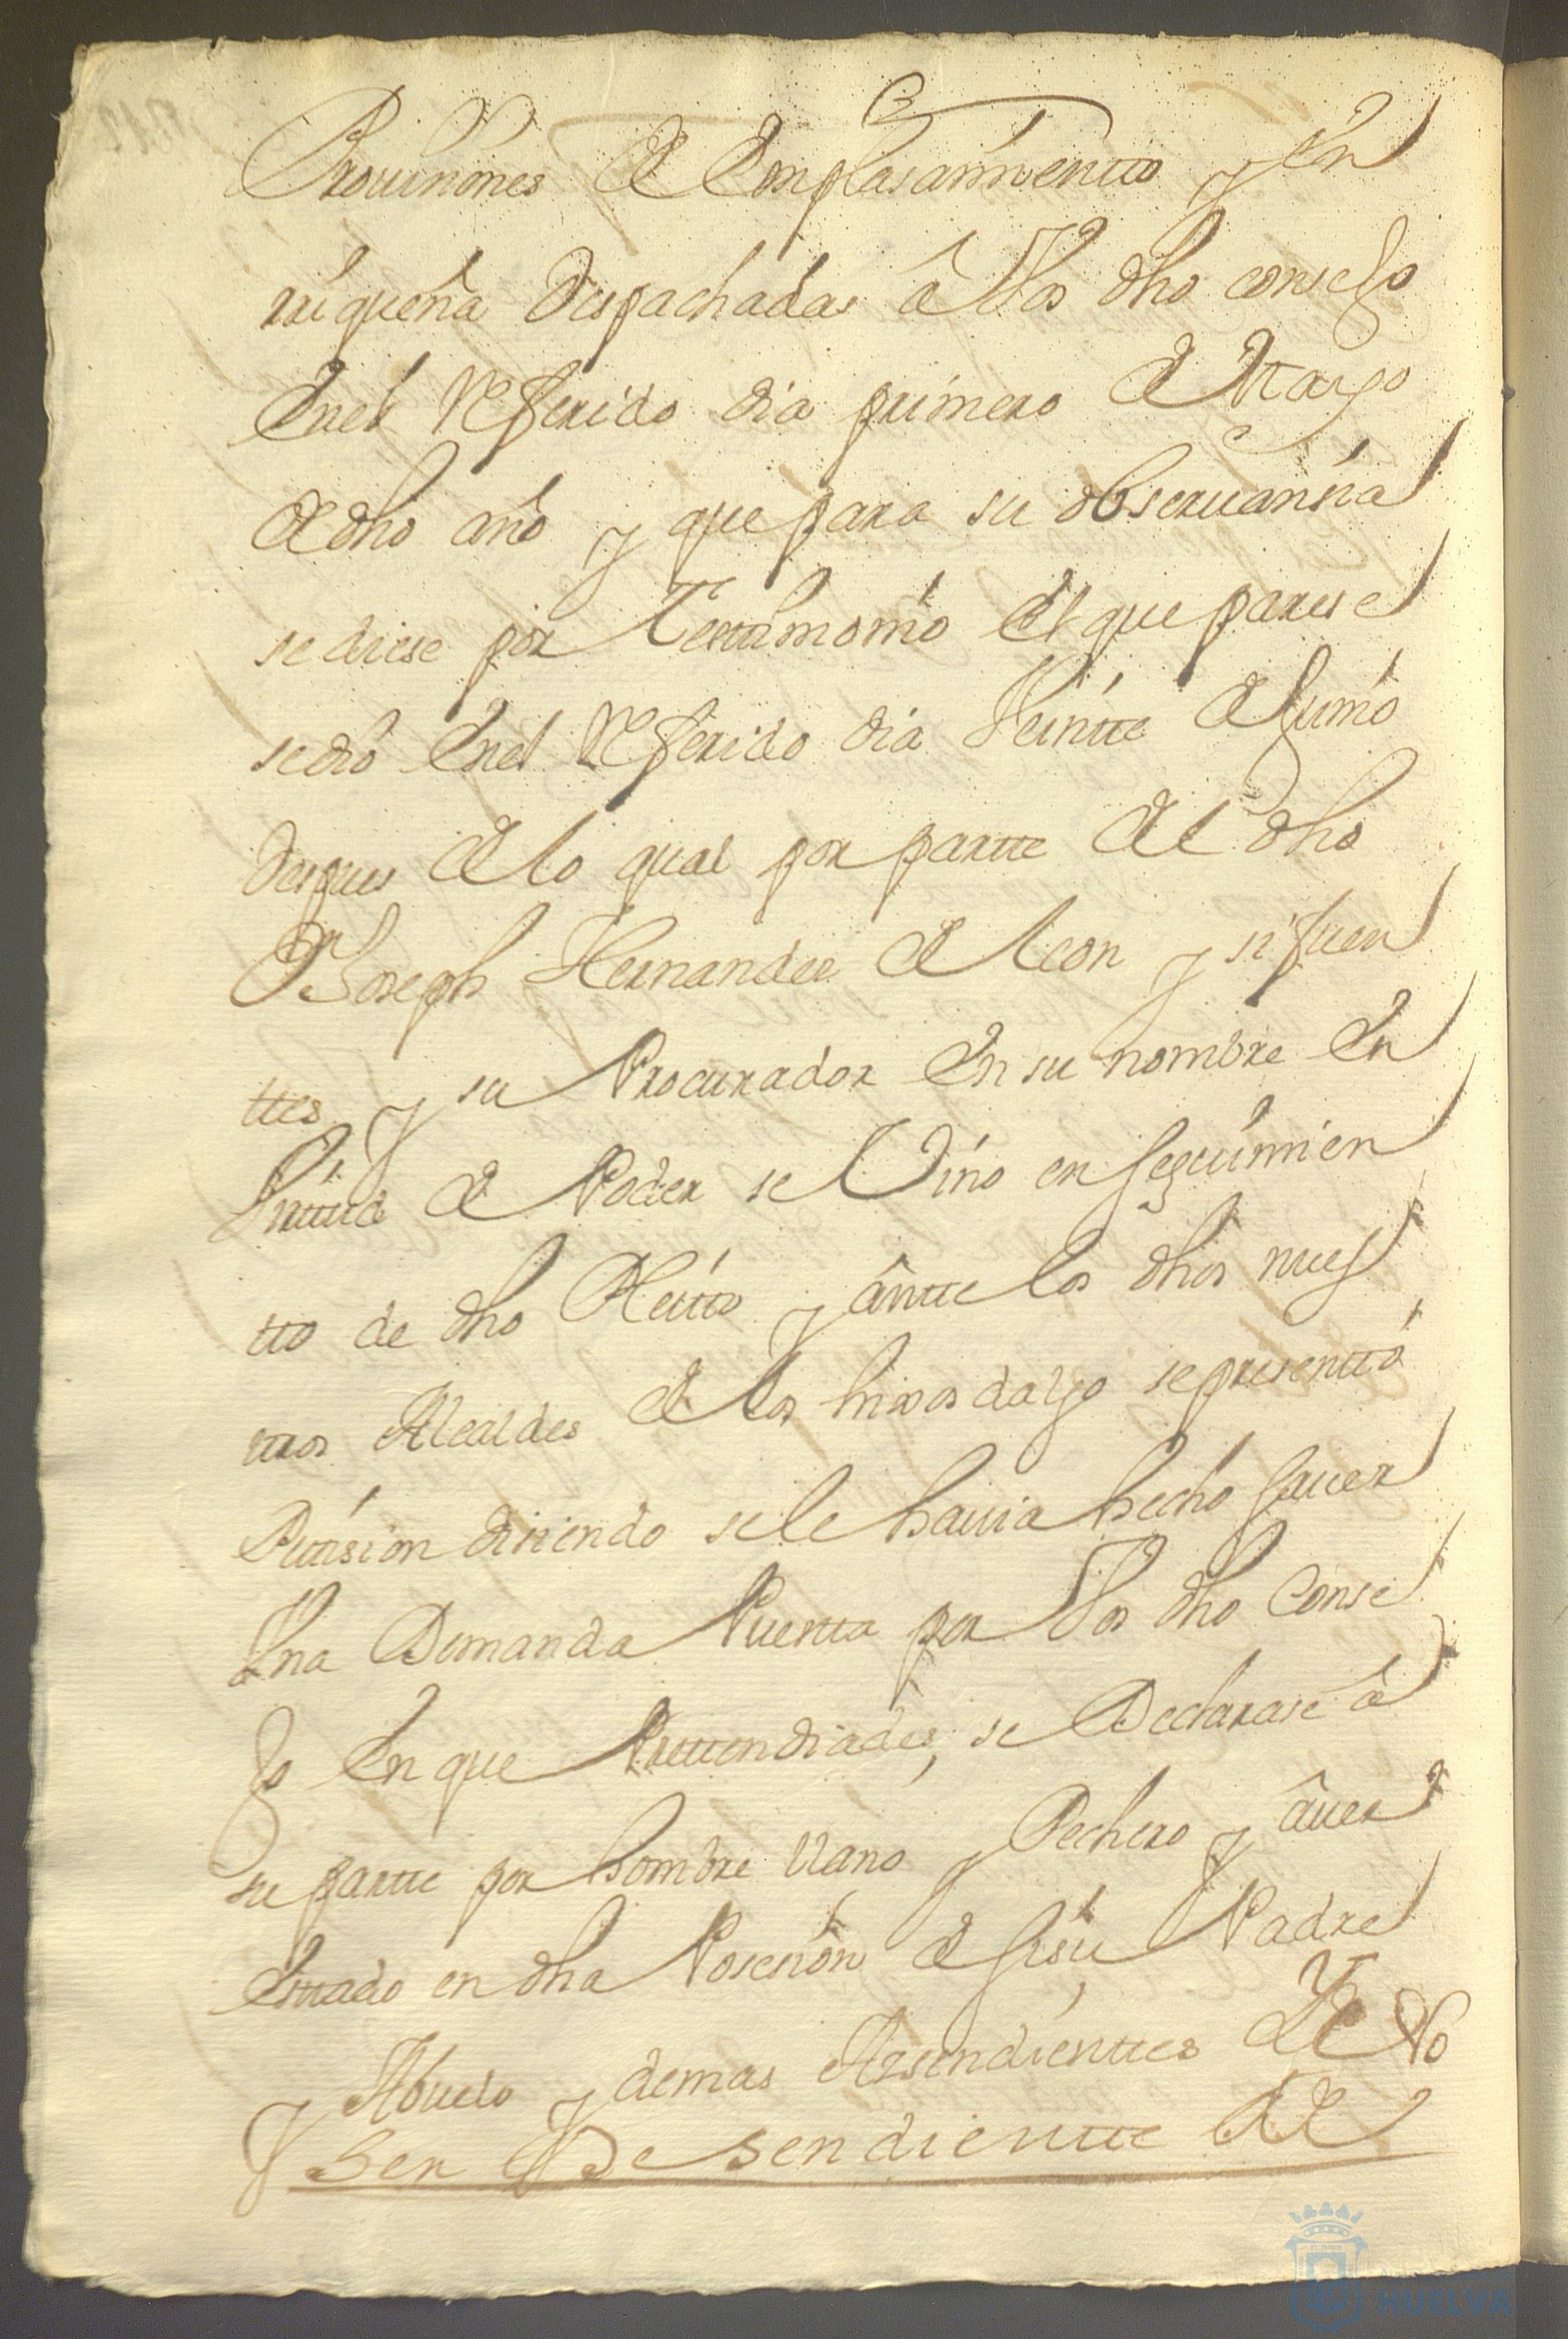 Prouisiones de Emplasamientto y En
rriqueña despachadas â Vos dho consejo
En el Referido dia primero de Mayo
de dho año y que para su observansia
se diese por Testtimonio El que parese
se dió En el Referido dia Veintte de Junio
despues de lo qual por partte del dho
Dn Joseph Hernandez de Leon y sifuen
ttes y su Procurador En su nombre En
Virttud de Poder se Vino en seguimien
tto de dho Pleitto y ântte los dhos nues
ttros Alcaldes de los hixosdalgo se presenttó
Pettision disiendo se le hauia hecho sauer
Vna Demanda Puestta por Vos dho Conse
jo En que Prettendiades, se Declarase â
su partte por hombre llano y Pechero y âuer
Esttado en dha Posesion de su Padre
y Abuelo y demas Assendienttes Y No
Ser Desendientte de
HUELVA